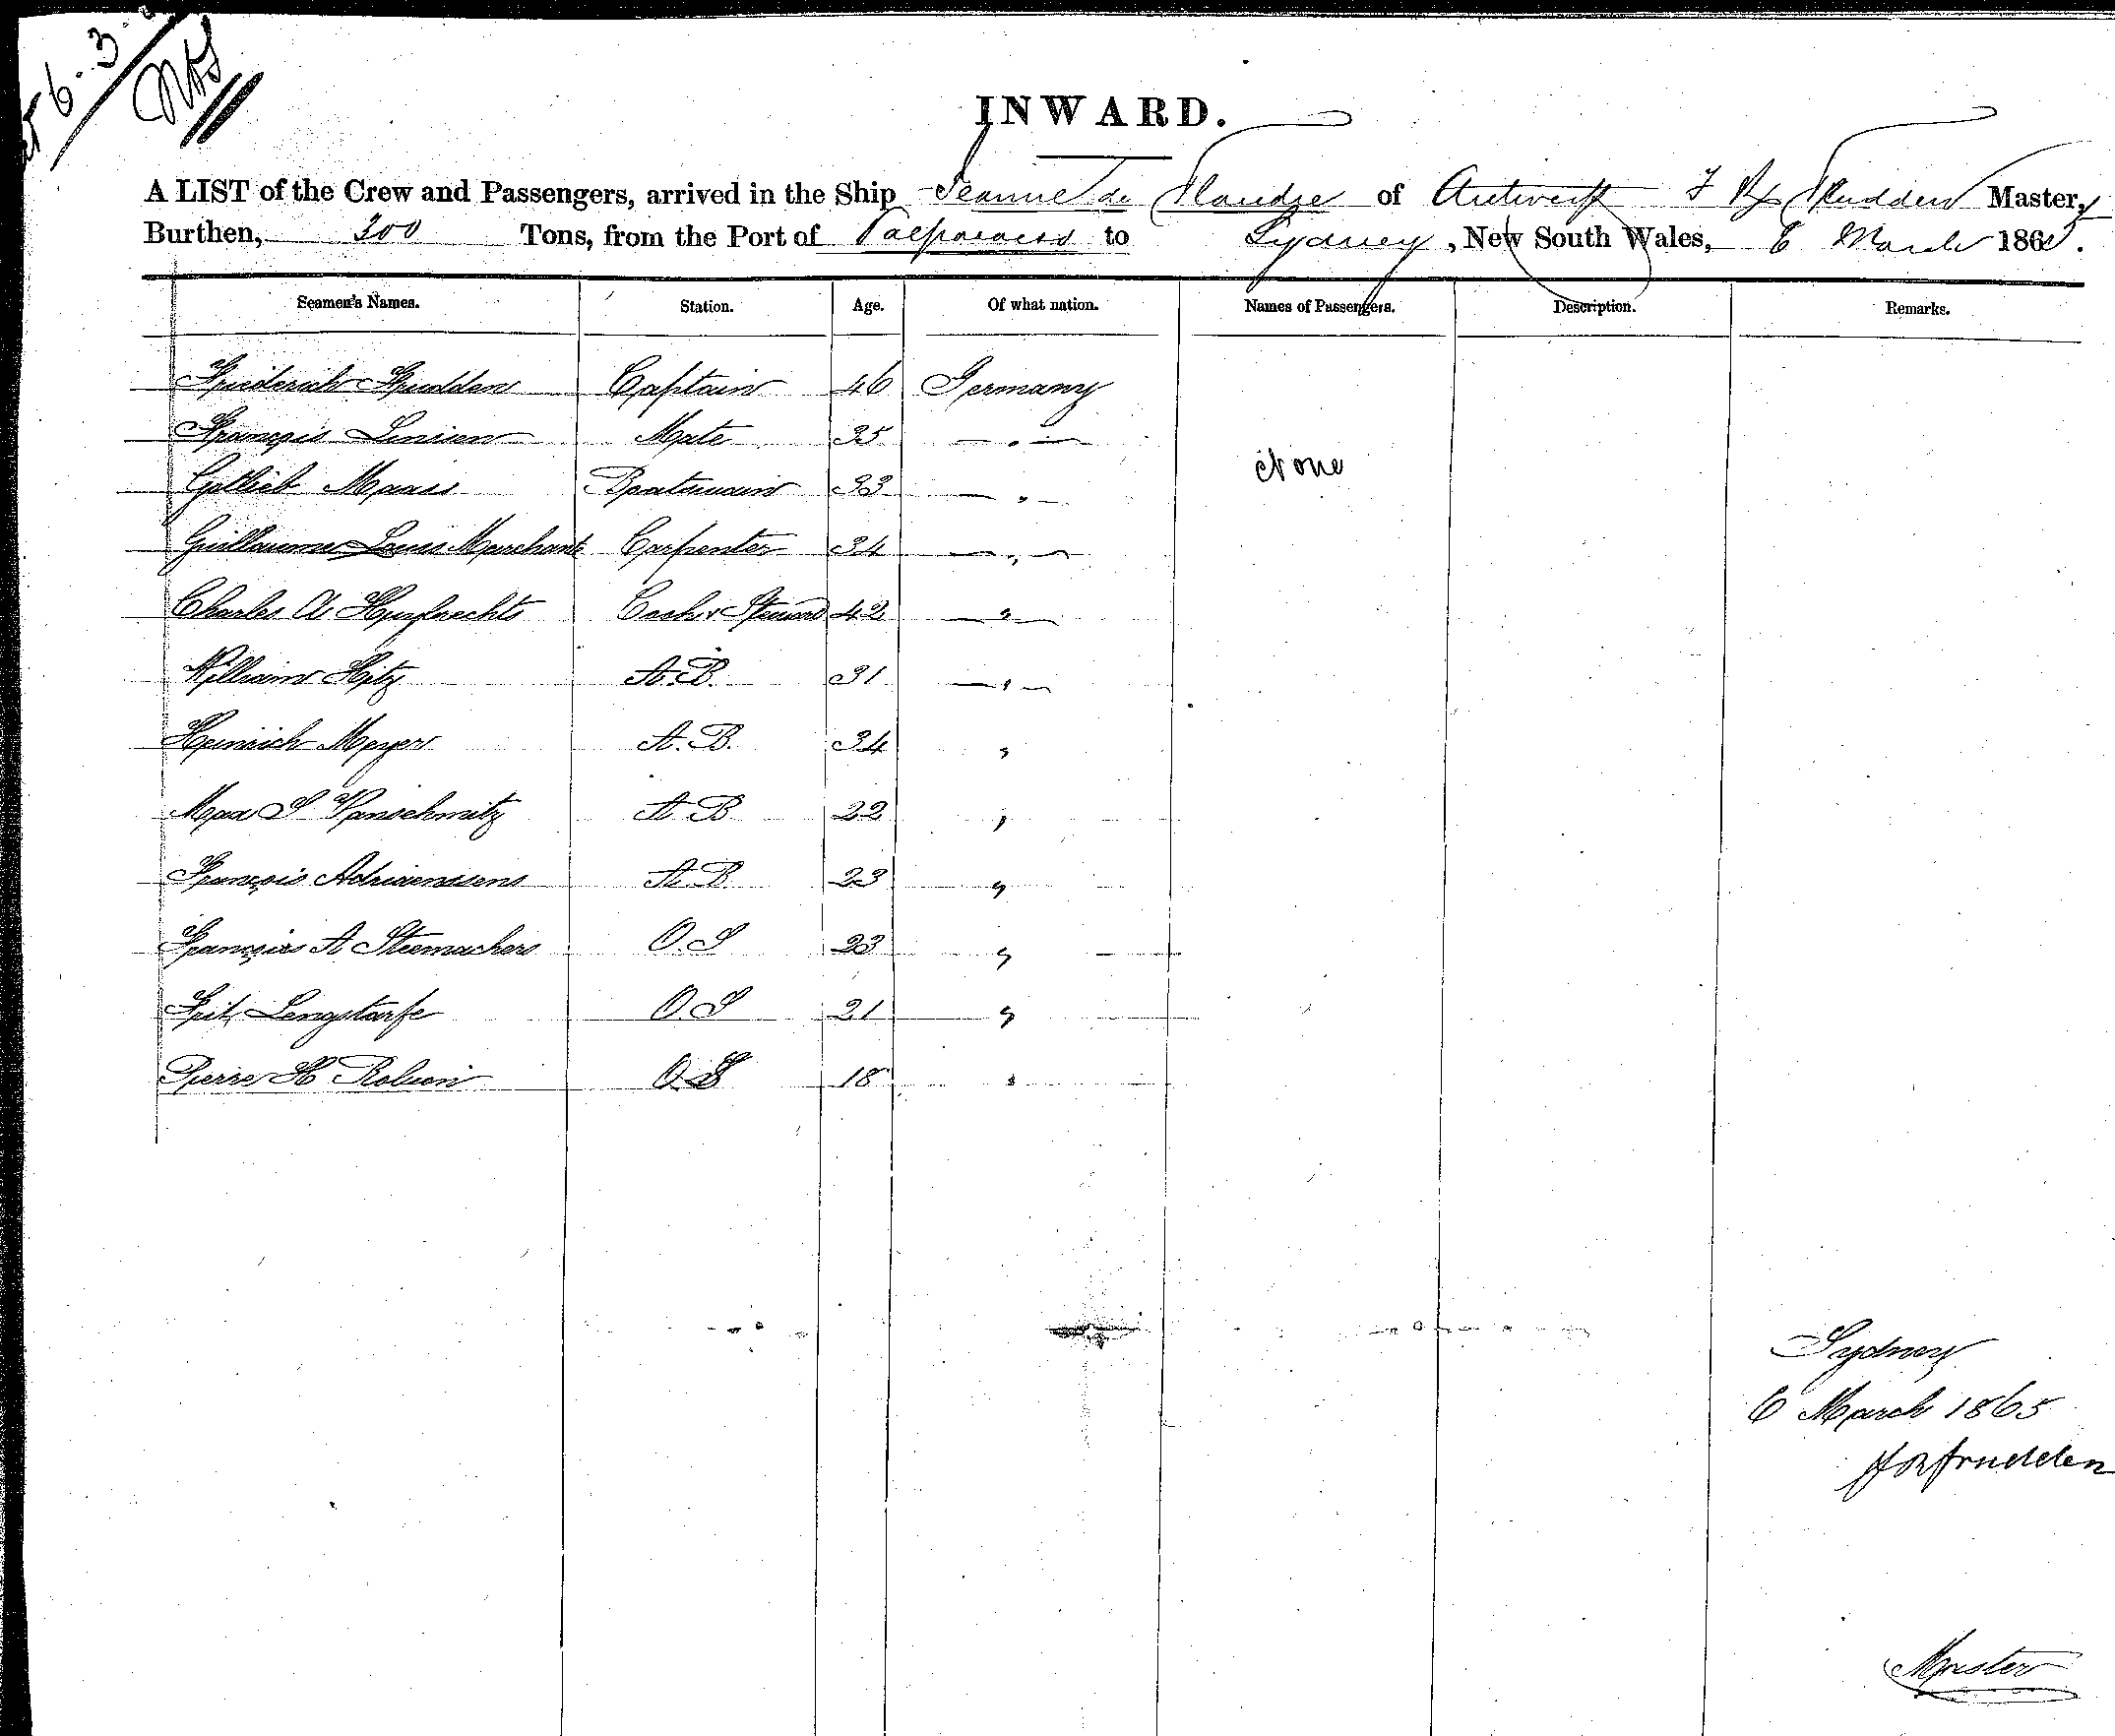 6.3.
INWARD.
A LIST of the Crew and Passengers, arrived in the Ship Jeanne de Flandre of Antwerp F Master,
Burthen, 300 Tons, from the Port of Valparaiso to Sydney, New South Wales, 6 March 1865.
Seamen's Names. Station. Age. Of what nation. Names of Passengers. Description. Remarks.
Friederich Captain 46 Germany
François Mate 35 — " —
None
Gottlieb Maass Boatswain 33 — " —
Guillaume Louis Marchant Carpenter 34 — " —
Charles A Huybrechts Cook & Steward 42 — " —
William Hitz A.B. 31 — " —
Heinrich Meyer A.B. 34 "
Max Vanschmitz A B 22 "
François Adriaenssens A.B. 23 "
François A Steemachers O.S 23 "
Lengstarfe O.S 21 "
Pierre H O.S 18 "
Sydney
6 March 1865
Master